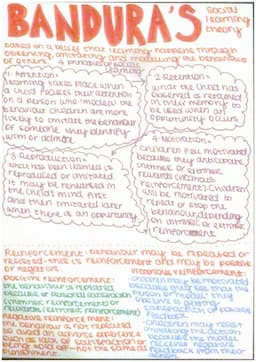 BANDURA'S social
learning
theory
based on a belief that learning happens through
observing, imitating and modelling the behaviour
of others. 4 principles of social
learning
1. Attention:
learning takes place when
a child focuses their attention
on a person who models the
behaviour. children are more
likely to imitate the behaviour
of someone they identify
with or admire
2. Retention:
what the child has
observed is retained
in their memory to
be used when an
opportunity occurs
3. Reproduction:
what has been learned is
reproduced or imitated
it may be rehearsed in
the child's mind first
and then imitated later
when there is an oppurtunity
4. Motivation:
children are motivated
because they anticipate
intrinsic or extrinsic
rewards
reinforcement. Children
will be motivated to
repeat or stop the
behaviour depending
on intrinsic or extrinsic
reinforcement
Reinforcement: behaviour may be repeated or
resisted - this is reinforcement and may be positive
or negative.
positive reinforcement:
the behaviour is repeated
because of personal satisfaction
(intrinsic reinforcement) or
rewards (extrinsic reinforcement)
negative reinforcement:
the behaviour is not repeated
to avoid an adverse experience
such as lack of satisfaction or
being told off - not the same as
punishment
vicarious reinforcement:
children may be motivated
because they see that the
person or model they
characteristics of
children may resist
imitating the action
because the model
receives negative
feedback from their